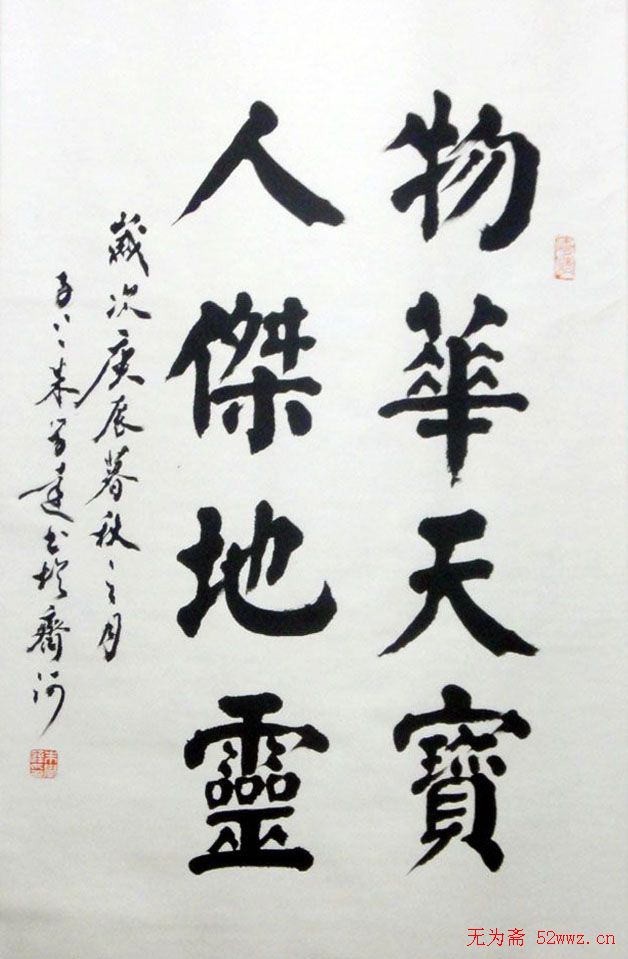 物華天寶
人傑地靈
歲次庚辰暮秋之月
達书於齊河
无为斋 52wwz.cn